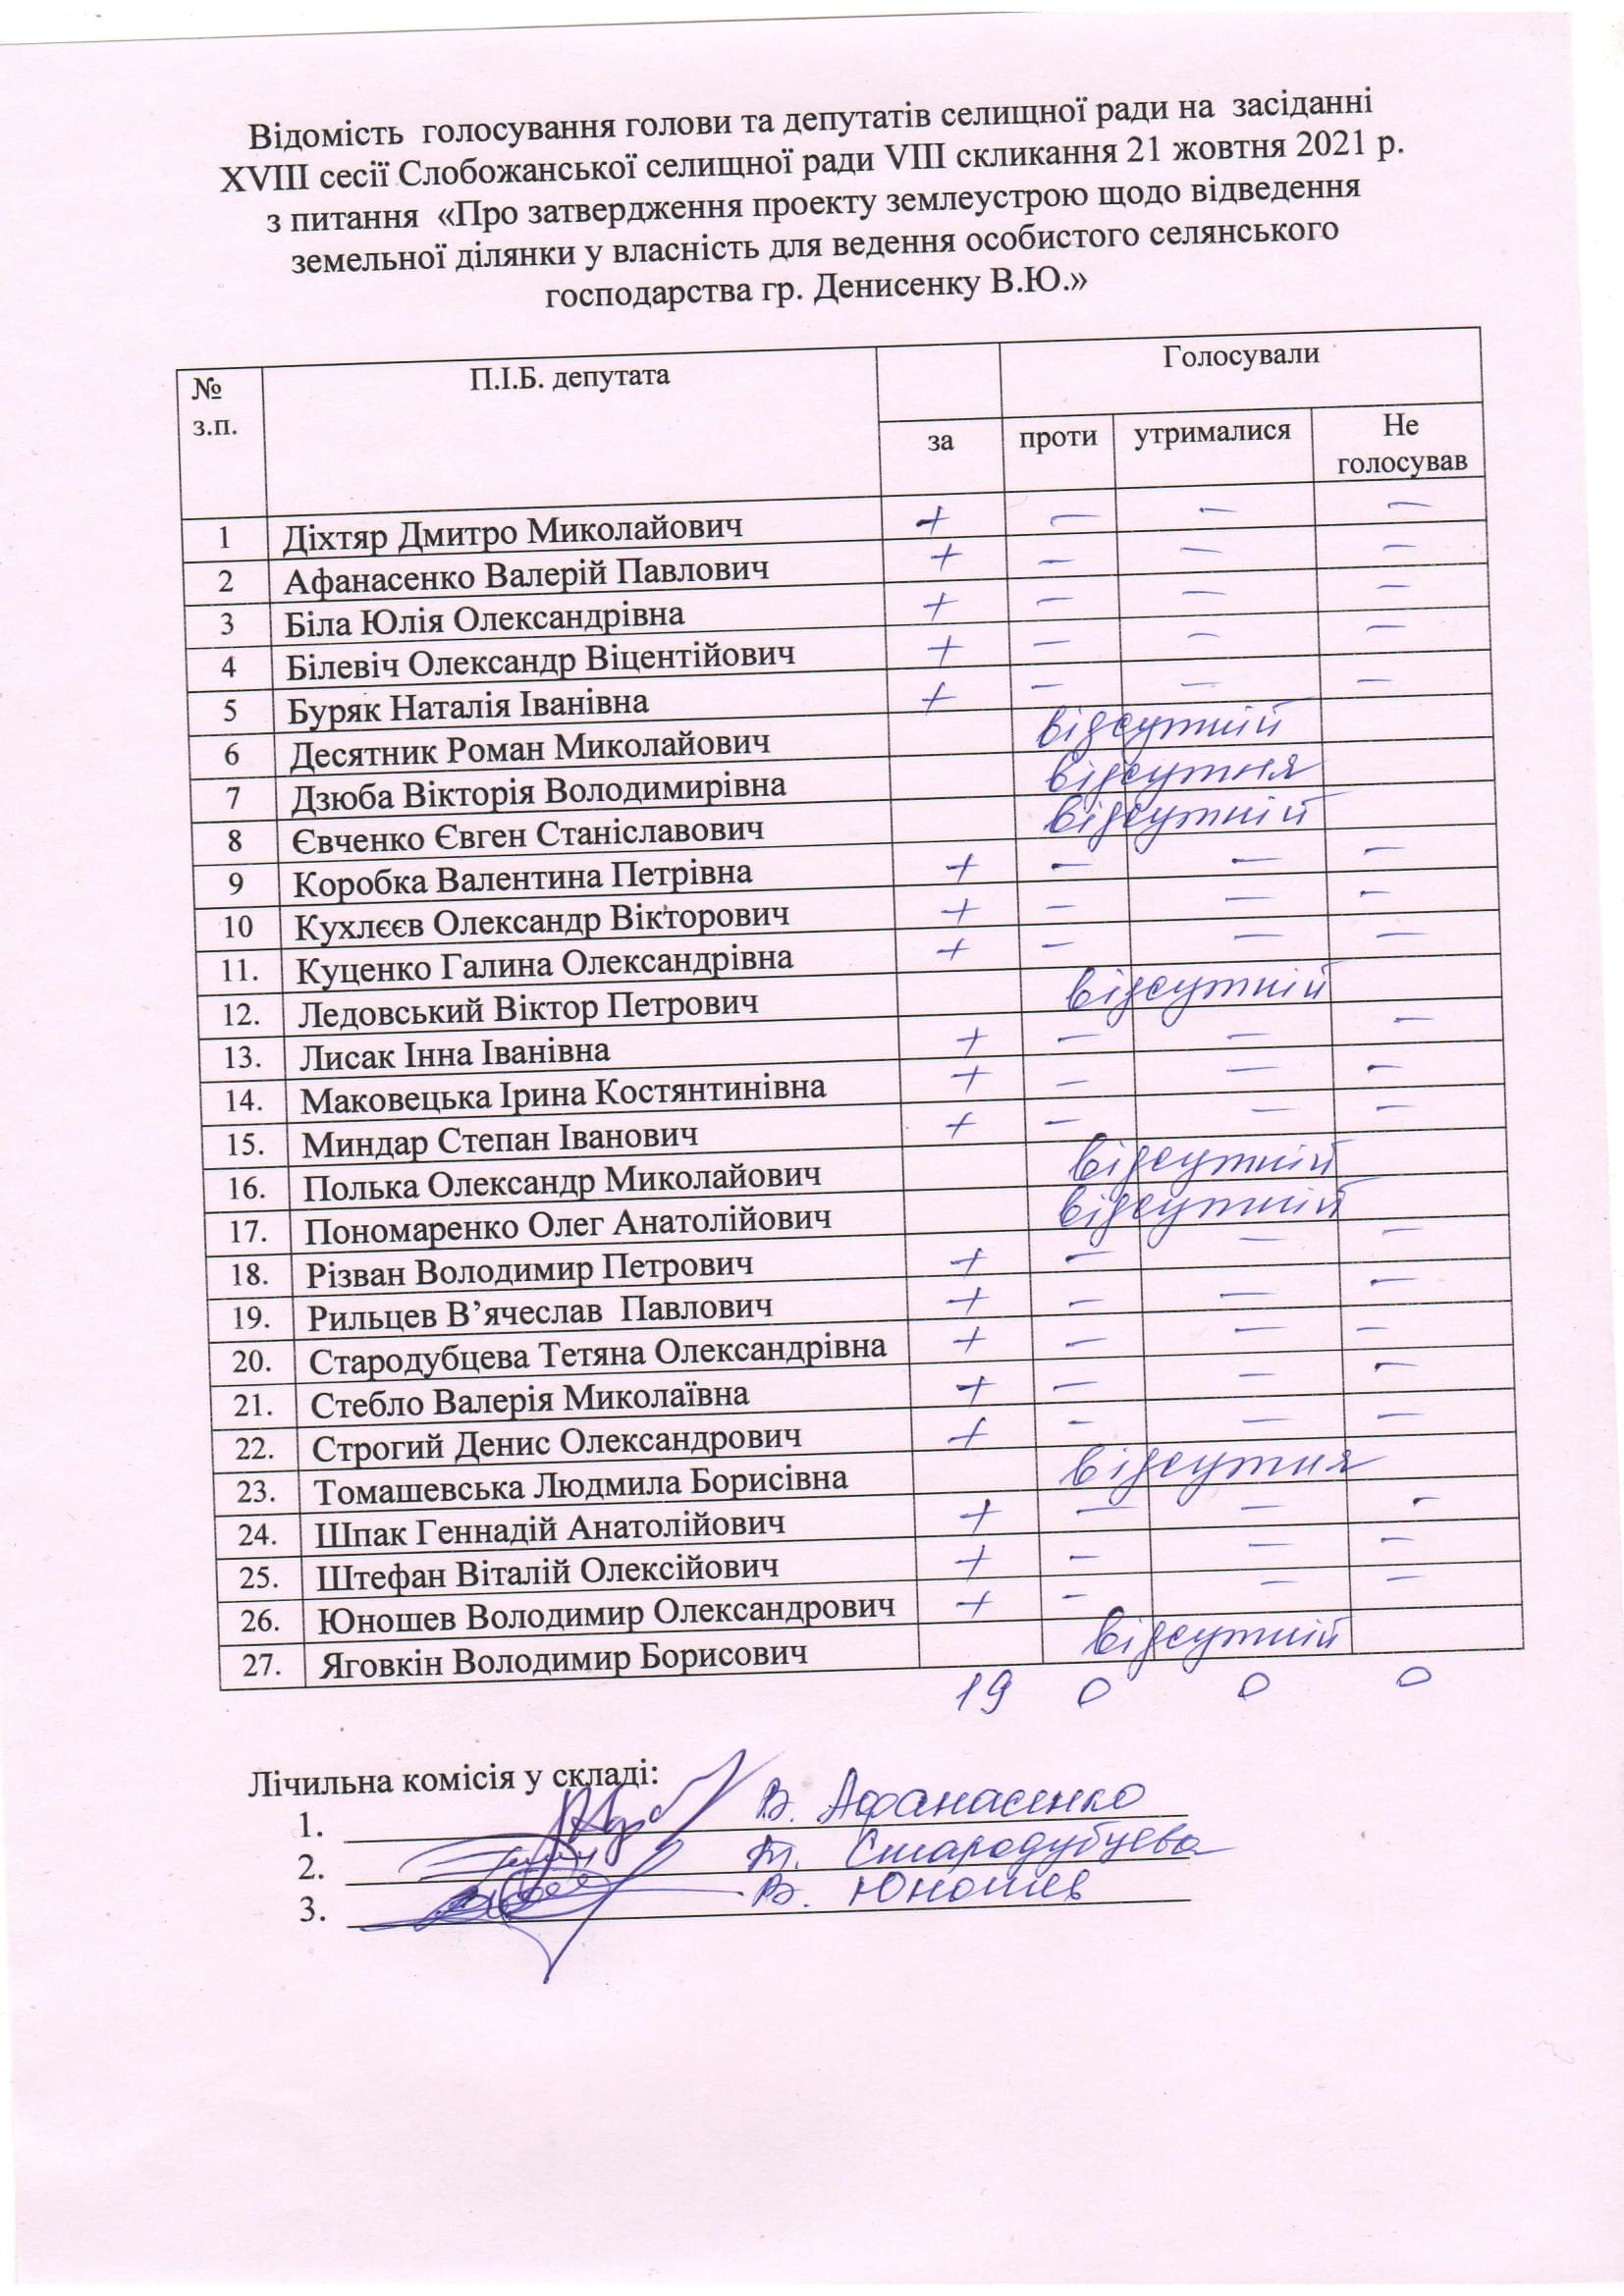 Відомість голосування голови та депутатів селищної ради на засіданні
XVIII сесії Слобожанської селищної ради VIII скликання 21 жовтня 2021 р.
з питання «Про затвердження проекту землеустрою щодо відведення
земельної ділянки у власність для ведення особистого селянського
господарства гр. Денисенку В.Ю.»
№ з.п. П.І.Б. депутата Голосували
за проти утрималися Не голосував
1 Діхтяр Дмитро Миколайович + – – –
2 Афанасенко Валерій Павлович + – – –
3 Біла Юлія Олександрівна + – – –
4 Білевіч Олександр Віцентійович + – – –
5 Буряк Наталія Іванівна + – – –
6 Десятник Роман Миколайович відсутній
7 Дзюба Вікторія Володимирівна відсутня
8 Євченко Євген Станіславович відсутній
9 Коробка Валентина Петрівна + – – –
10 Кухлєєв Олександр Вікторович + – – –
11. Куценко Галина Олександрівна + – – –
12. Ледовський Віктор Петрович відсутній
13. Лисак Інна Іванівна + – – –
14. Маковецька Ірина Костянтинівна + – – –
15. Миндар Степан Іванович + – – –
16. Полька Олександр Миколайович відсутній
17. Пономаренко Олег Анатолійович відсутній
18. Різван Володимир Петрович + – – –
19. Рильцев В’ячеслав Павлович + – – –
20. Стародубцева Тетяна Олександрівна + – – –
21. Стебло Валерія Миколаївна + – – –
22. Строгий Денис Олександрович + – – –
23. Томашевська Людмила Борисівна відсутня
24. Шпак Геннадій Анатолійович + – – –
25. Штефан Віталій Олексійович + – – –
26. Юношев Володимир Олександрович + – – –
27. Яговкін Володимир Борисович відсутній
19 0 0 0
Лічильна комісія у складі:
1. В. Афанасенко
2. Т. Стародубцева
3. В. Юношев